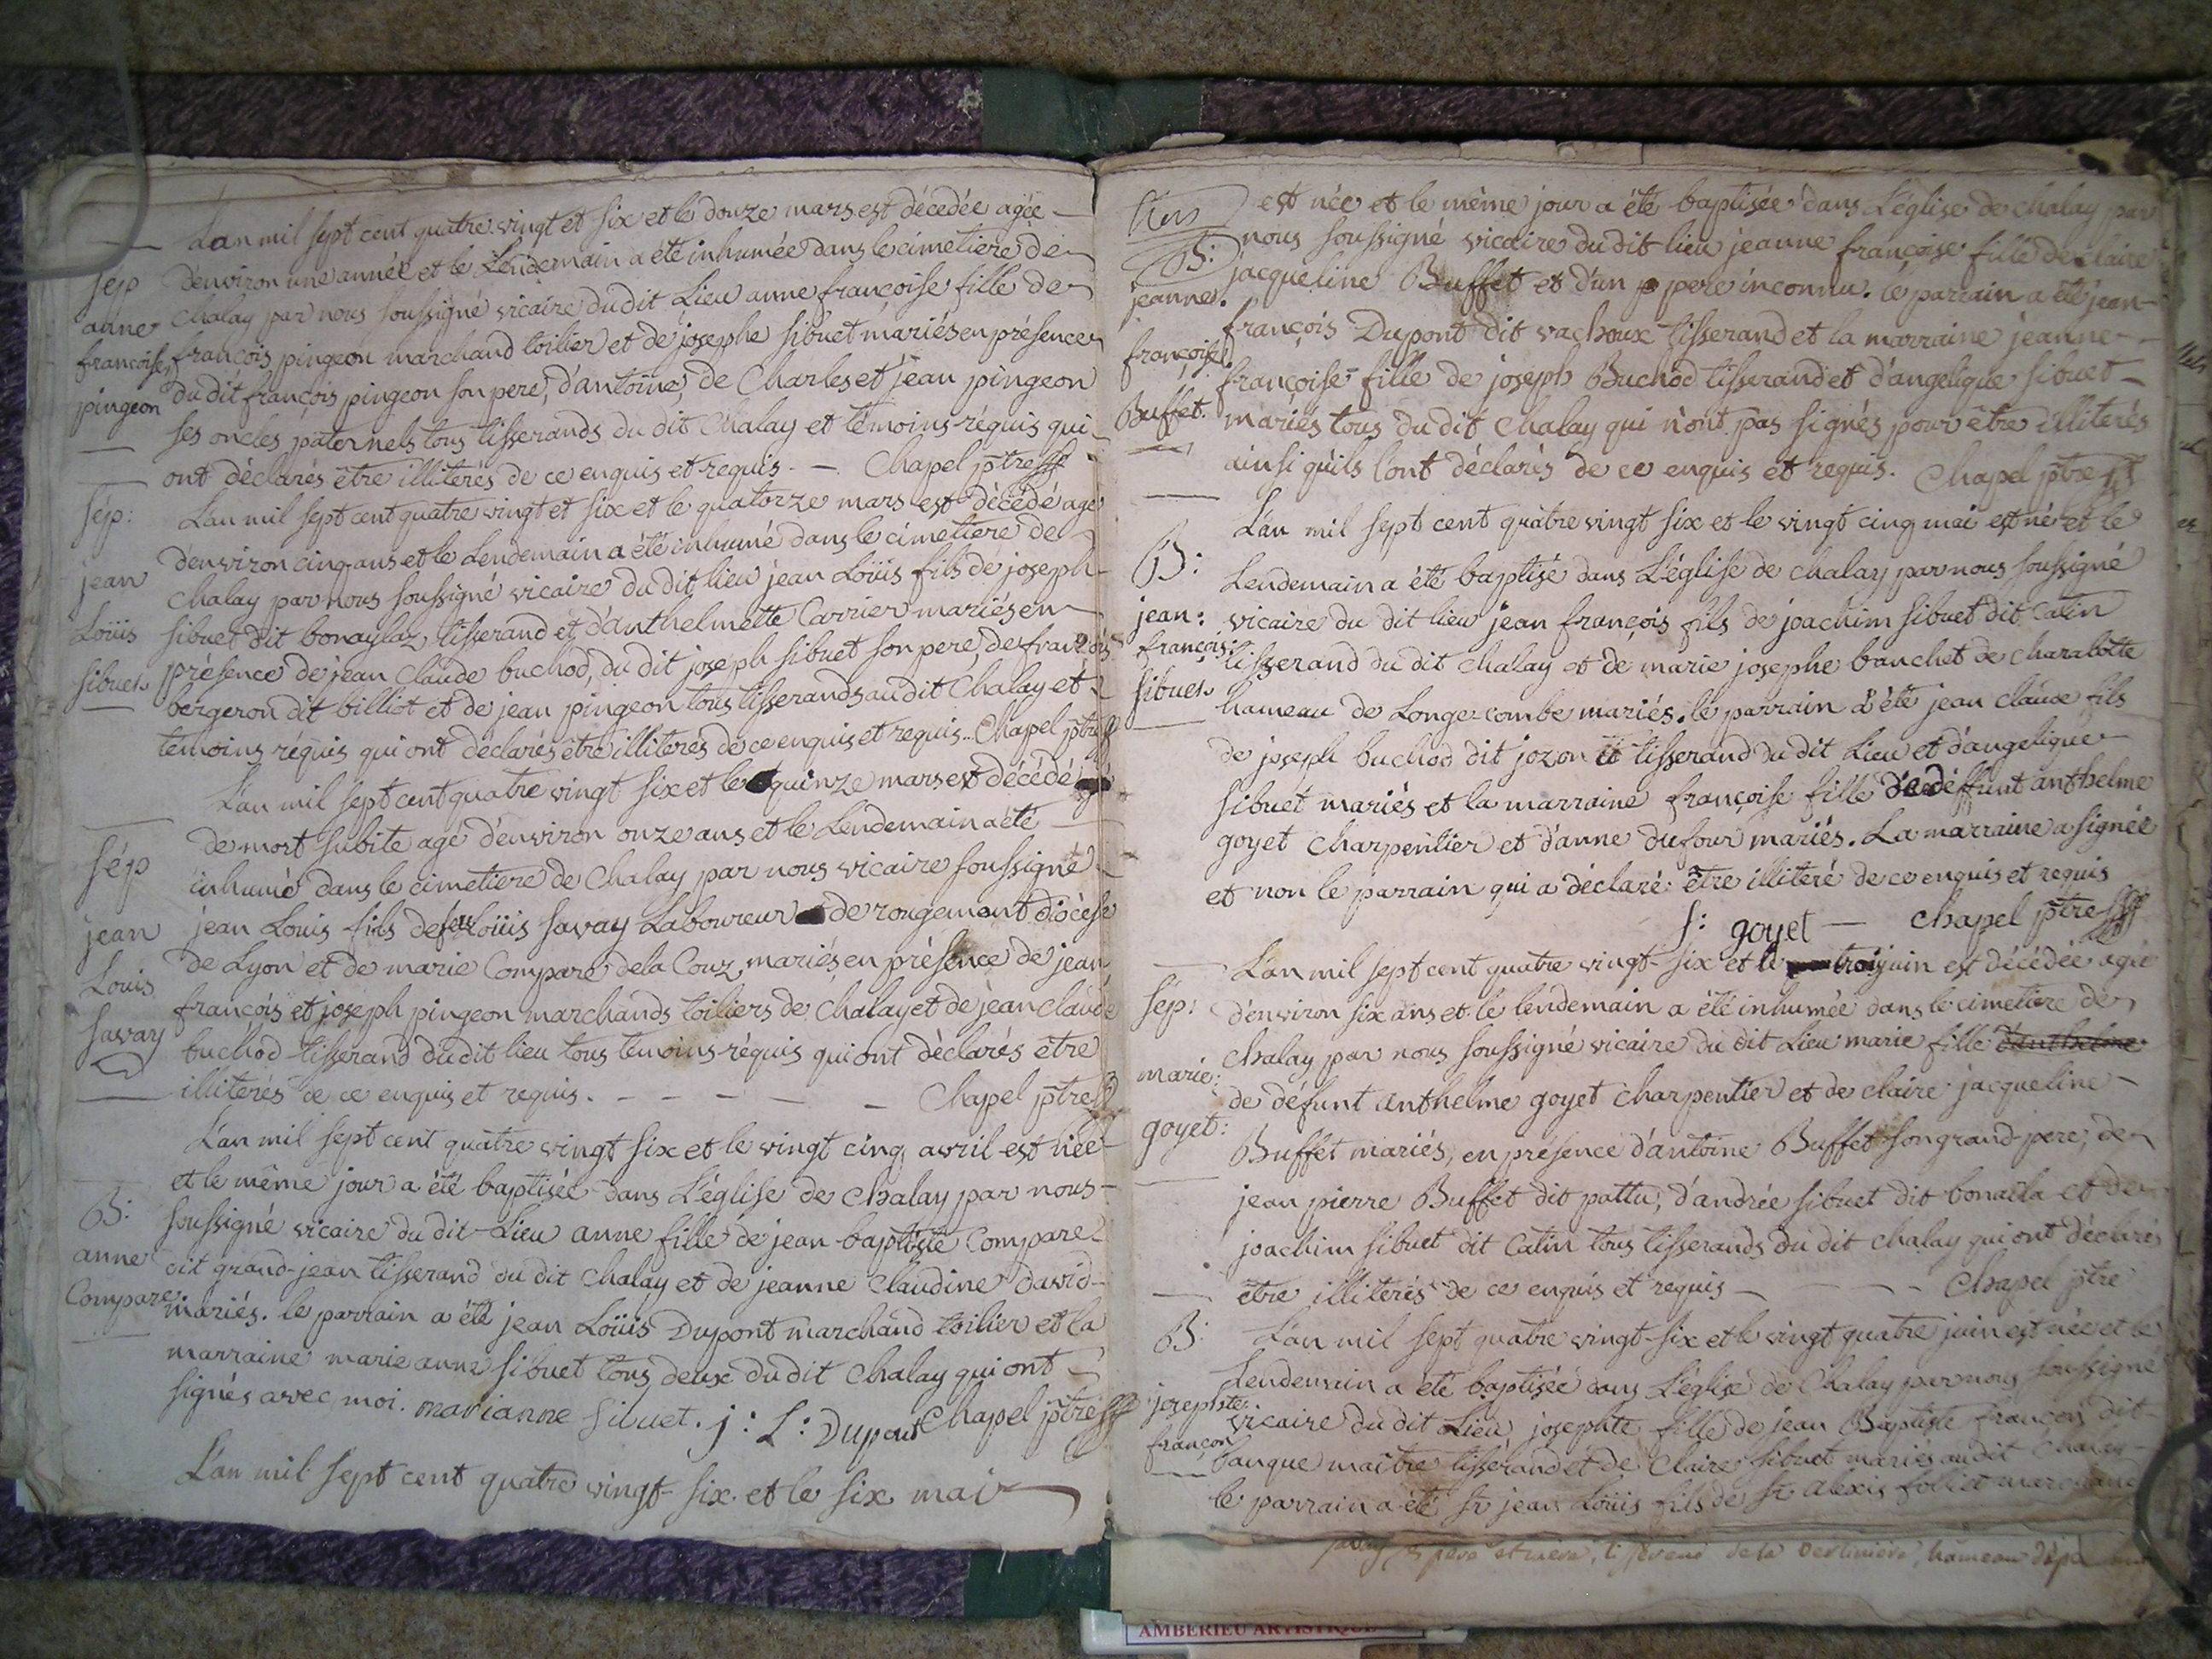 L'an mil sept cent quatre vingt et six et le douze mars est décédée agée
Sep
d'environ une année et le Lendemain a été inhumée dans le cimetiere de
anne
Chalay par nous soussigné vicaire du dit Lieu anne françoise fille de
françoise
françois pingeon marchand toilier et de josephe sibuet mariés en présence
pingeon
du dit françois pingeon son pere, d'antoine, de Charles et jean pingeon
ses oncles paternels tous tisserands du dit Chalay et témoins réquis qui
ont déclarés être illiterés de ce enquis et requis. — Chapel ptre
Sép:
L'an mil sept cent quatre vingt et six et le quatorze mars est décédé agé
d'environ cinq ans et le Lendemain a été inhumé dans le cimetiere de
jean
Chalay par nous soussigné vicaire du dit lieu jean Loüis fils de joseph
Loüis
sibuet dit bonaylaz, tisserand et d'anthelmette Carrier mariés en
sibuet
présence de jean Claude buchod, du dit joseph sibuet son pere, de françois
bergeron dit billiot et de jean pingeon tous tisserands au dit Chalay et
témoins réquis qui ont déclarés être illiterés de ce enquis et requis.. Chapel ptre
L'an mil sept cent quatre vingt six et le quinze mars est décédé
de mort subite agé d'environ onze ans et le Lendemain a été
Sép
inhumé dans le cimetiere de Chalay par nous vicaire soussigné
jean
jean Louis fils de feu Loüis savay Laboureur de rougemont diocèse
Louis
de Lyon et de marie Compare de la Couz, mariés en présence de jean
savay
françois et joseph pingeon marchands toiliers de Chalay et de jean claude
buchod tisserand du dit lieu tous témoins réquis qui ont déclarés être
illiterés de ce enquis et requis. - - - - - Chapel ptre
L'an mil sept cent quatre vingt six et le vingt cinq avril est née
et le même jour a été baptisée dans L'église de Chalay par nous
B:
soussigné vicaire du dit Lieu anne fille de jean baptiste Compare
anne
dit grand-jean tisserand du dit Chalay et de jeanne Claudine david
Compare
mariés. le parrain a été jean Loüis Dupont marchand toilier et la
marraine marie anne sibuet tous deux du dit Chalay qui ont
signés avec moi. marianne Sibuet. j: L: Dupont Chapel ptre
L'an mil sept cent quatre vingt six et le six mai
est née et le même jour a été baptisée dans L'église de Chalay par
B:
nous soussigné vicaire du dit lieu jeanne françoise fille de claire
jeanne
jacqueline Buffet et d'un pere inconnu. le parrain a été jean
françoise
françois Dupont dit vachoux tisserand et la marraine jeanne
françoise fille de joseph Buchod tisserand et d'angelique sibuet
Buffet.
mariés tous du dit Chalay qui n'ont pas signés pour être illiterés
ainsi qu'ils l'ont déclarés de ce enquis et requis. Chapel ptre
L'an mil sept cent quatre vingt six et le vingt cinq mai est né et le
B:
Lendemain a été baptisé dans L'église de chalay par nous soussigné
jean:
vicaire du dit lieu jean françois fils de joachim sibuet dit Catin
françois:
tisserand du dit Chalay et de marie josephe branchet de charabotte
sibuet
hameau de Longe-combe mariés. le parrain a été jean claude fils
de joseph buchod dit jozon tisserand du dit Lieu et d'angelique
sibuet mariés et la marraine françoise fille de déffunt anthelme
goyet charpentier et d'anne dufour mariés. La marraine a signée
et non le parrain qui a déclaré être illiteré de ce enquis et requis
f: goyet — Chapel ptre
L'an mil sept cent quatre vingt-six et le trois juin est décédée agée
Sép:
d'environ six ans et le lendemain a été inhumée dans le cimetiere de
Chalay par nous soussigné vicaire du dit Lieu marie fille d'anthelme
marie:
de défunt anthelme goyet charpentier et de claire jacqueline
goyet:
Buffet mariés, en présence d'antoine Buffet son grand pere, de
jean pierre Buffet dit pattu, d'andrée sibuet dit bonaila et de
joachim sibuet dit Catin tous tisserands du dit chalay qui ont déclarés
être illiterés de ce enquis et requis — - - Chapel ptre
B:
L'an mil sept quatre vingt-six et le vingt quatre juin est née et le
Lendemain a été baptisée dans L'église de Chalay par nous soussigné
josephte
vicaire du dit Lieu josephte fille de jean Baptiste françon dit
françon
banque maître tisserand et de Claire sibuet mariés au dit Chalay
le parrain a été Sr jean Loüis fils de Sr alexis follict marchand
hameau
AMBERIEU ARTISTIQUE